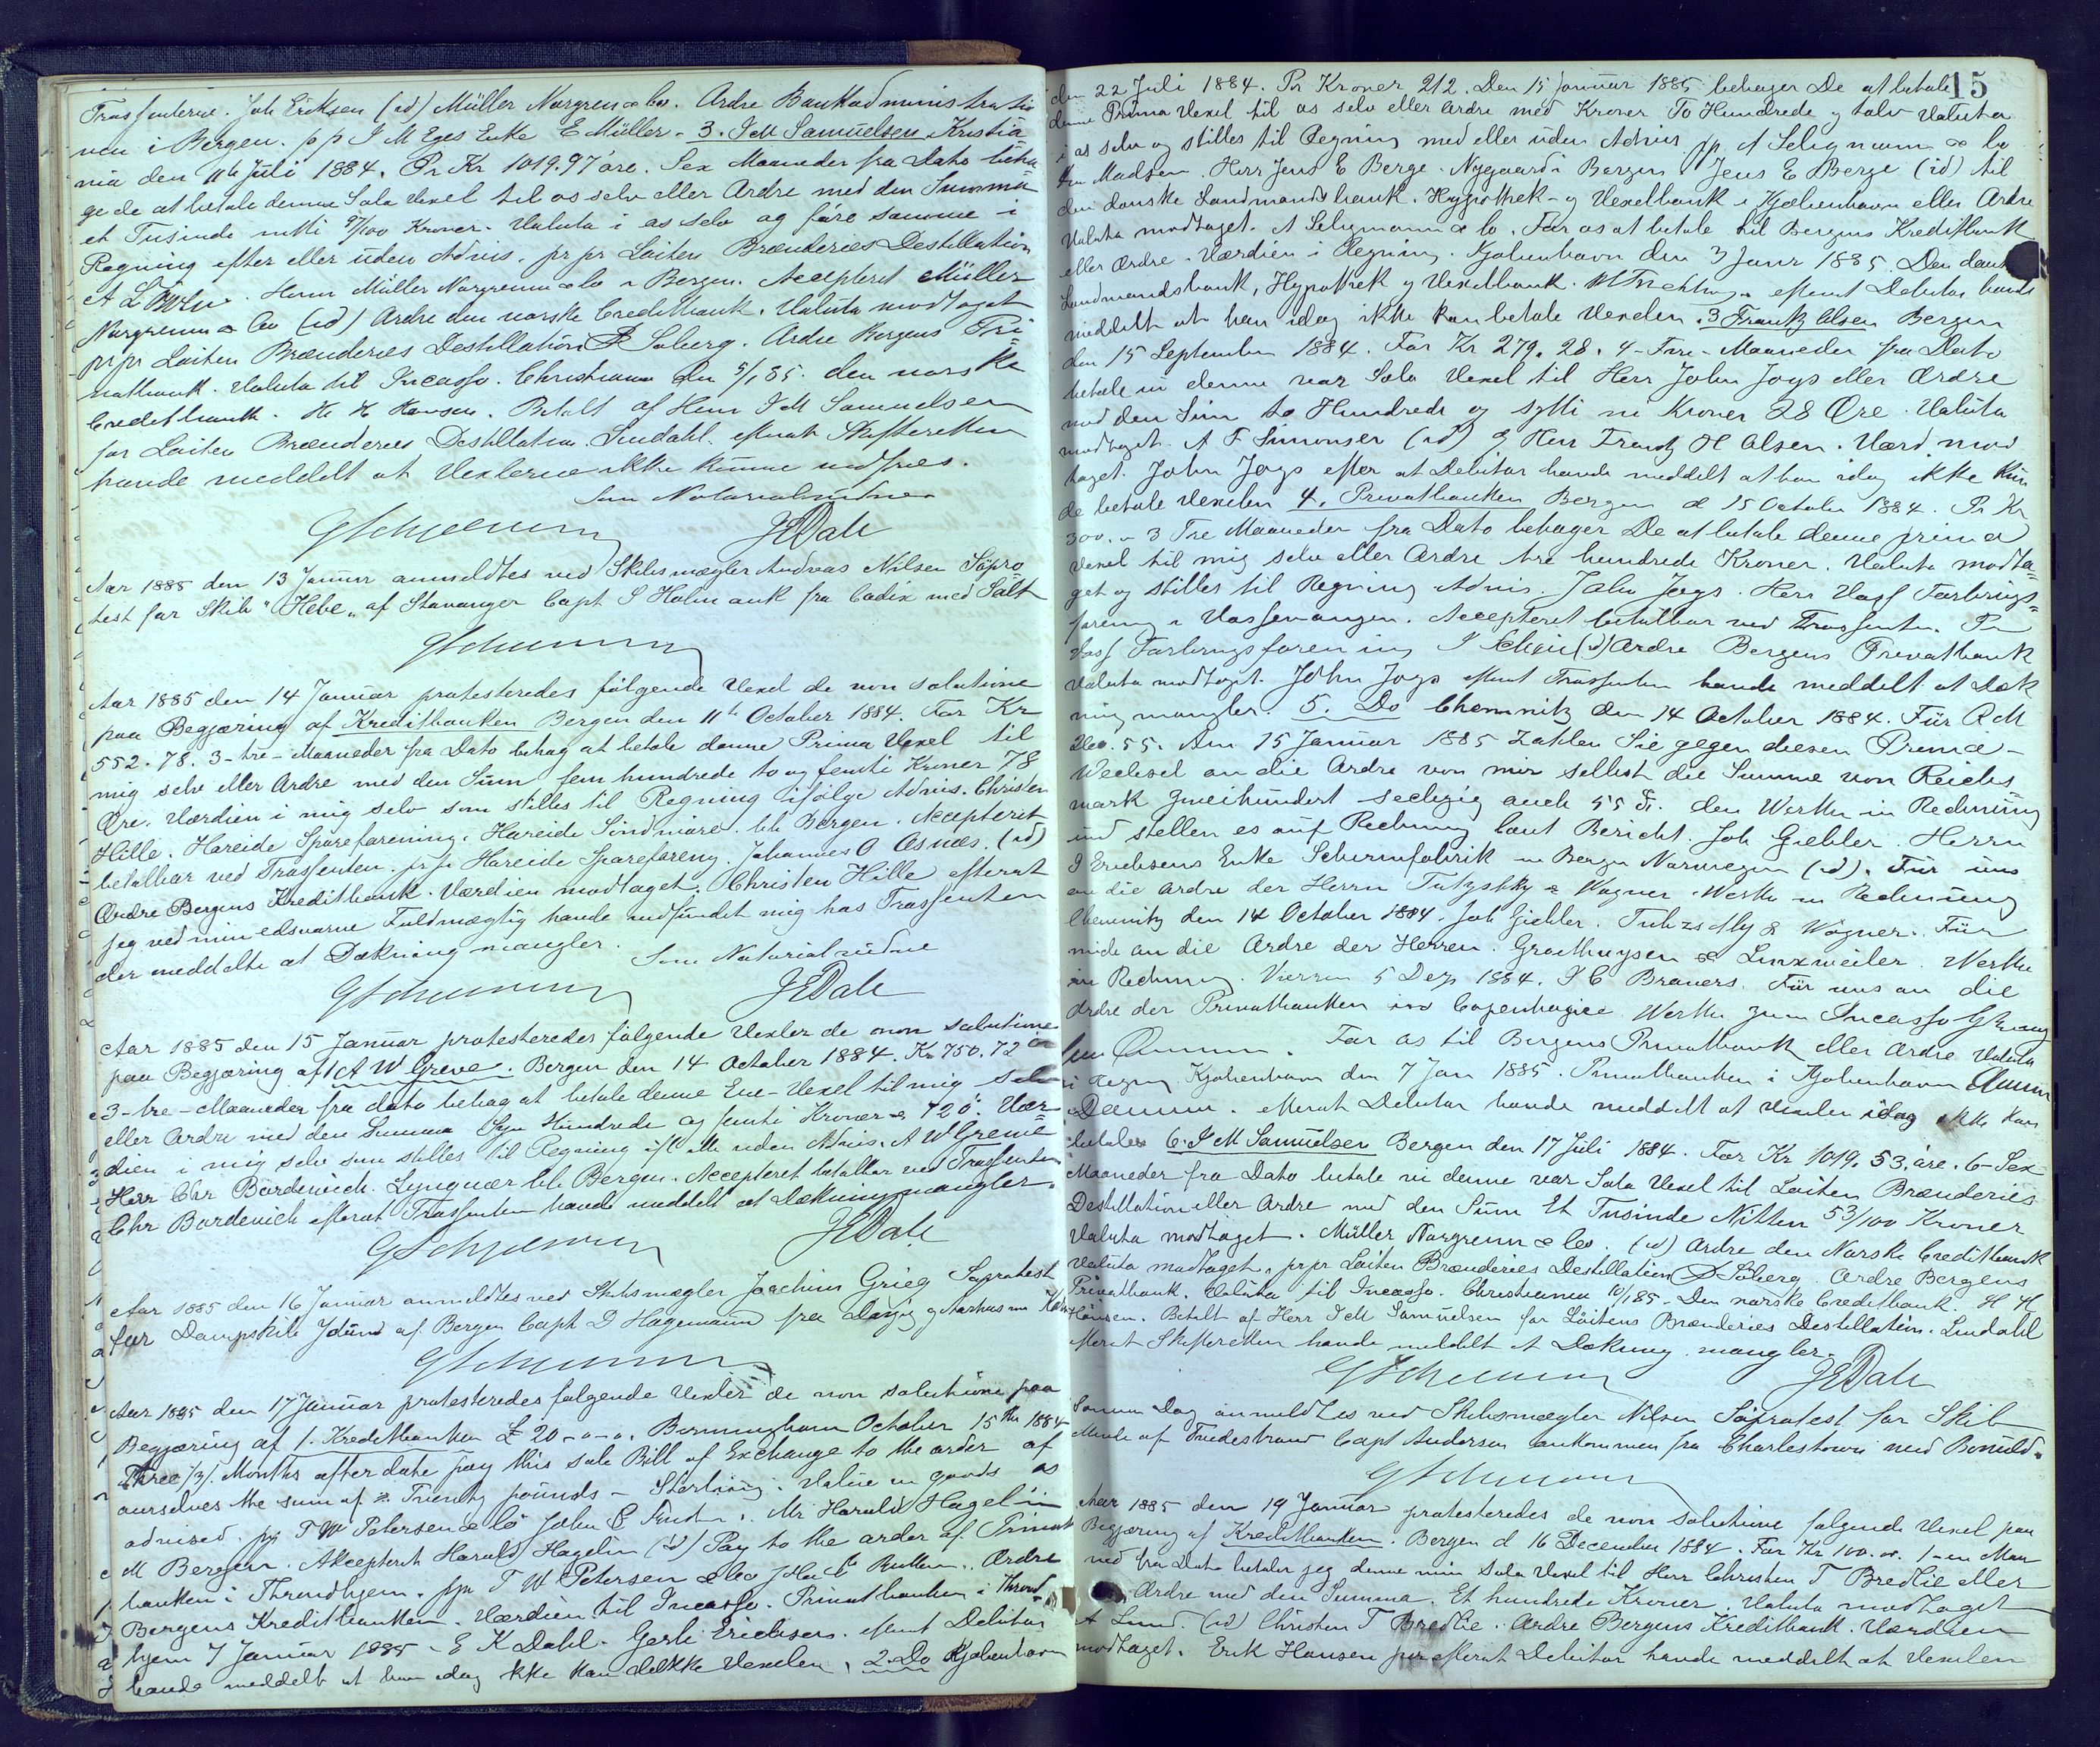 Trassenterne. Joh Eriksen (id) Müller Norgren & Co. Ordre Bankadministratio
nen i Bergen. pp J M Eges Enke E Müller - 3. J M Samuelsen Kristia
nia den 11te Juli 1884. Pr Kr 1019.97 øre. Sex Maaneder fra Dato beha
ge de at betale denne Sola Vexel til os selv eller Ordre med den Summa
et Tusinde nitti 97/100 Kroner. Valuta i os selv og føre samme i
Regning efter eller uden Advis. pr pr Løiten Brænderies Destillation
Herrn Müller Norgrenn & Co i Bergen. Accepteret Müller
Norgrenn & Co (id) Ordre den norske Creditbank. Valuta modtaget
pr pr Løiten Brænderies Destillation Soberg. Ordre Bergens Pri
vatbank. Valuta til Incasso. Christiania den 5/1 85. den norske
Creditbank. H H Hansen. Betalt af Herr J M Samuelsen
for Løiten Brænderies Destillation. Lindahl. efterat Skifteretten
havde meddelt at Vexlerne ikke kunne indfries.
Som Notarialvidne
GSchjelderup JEDale
Aar 1885 den 13 Januar anmeldtes ved Skibsmægler Andreas Nilsen Søpro
test for Skib "Hebe" af Stavanger Capt S Holm ank fra Cadix med Salt
Aar 1885 den 14 Januar protesteredes følgende Vexel de non solutione
paa Begjæring af Kreditbanken Bergen den 11te October 1884. For Kr
552.78. 3-tre-Maaneder fra Dato behag at betale denne Prima Vexel til
mig selv eller Ordre med den Sum fem hundrede to og femti Kroner 78
Øre. Værdien i mig selv som stilles til Regning ifølge Advis. Christen
Hille. Hareide Spareforening. Hareide Søndmøre. bb Bergen. Accepteret
betalbar ved Trassenten. pr pr Hareide Spareforeng. Johannes O Osnæs. (id)
Ordre Bergens Kreditbank. Værdien modtaget. Christen Hille efterat
jeg ved min edsvorne Fuldmægtig havde indfundet mig hos Trassenten
der meddelte at Dækning mangler.
Som Notarialvidne
JEDale
Aar 1885 den 15 Januar protesteredes følgende Vexler de non solutione
paa Begjæring af 1 A W Greve. Bergen den 14 October 1884. Kr 750.72 øre
3-tre-Maaneder fra dato behag at betale denne Ene-Vexel til mig selv
eller Ordre med den Summa Syv Hundrede og femti Kroner & 72ø. Vær
dien i mig selv som stilles til Regning ifl elle uden Advis. A W Greve
Herr Chr Bardewich. Lyngvær bb Bergen. Accepteret betalbar ved Trassenten
Chr Bardewich efterat Trassenten havde meddelt at Dækning mangler.
JEDale
Aar 1885 den 16 Januar anmeldtes ved Skibsmægler Joachim Grieg Søprotest
for Dampskib Ydun af Bergen Capt D Hagemann fra Danzig og Aarhus m
Aar 1885 den 17 Januar protesteredes følgende Vexler de non solutione paa
Begjæring af 1. Kreditbanken £ 20-0-0. Birmingham October 15th 1884
Three /3/. Months after date pay this sole Bill of Exchange to the order of
ourselves the sum of Twenty pounds - Sterling. Value in goods as
advised. pp T W Petersen & Co John C . Mr Harald Hagelin
M Bergen. Accepteret Harald Hagelin (id) Pay to the order of Privat
banken i Throndhjem. pp T W Petersen & Co Ordre
Bergens Kreditbanken. Værdien til Incasso. Privatbanken i Thrond
hjem 7 Januar 1885 - E K Dahl. Gerh Erichsen. efterat Debitor
havde meddelt at han idag ikke kan dække Vexelen. 2. Do Kjøbenhavn
15
den 22 Juli 1884. Pr Kroner 212. Den 15 Januar 1885 behager De at betale
denne Prima Vexel til os selv eller Ordre med Kroner To Hundrede og tolv Valuta
i os selv og stilles til Regning med eller uden Advis pp A Seligmann & Co
Madsen. Herr Jens E Berge. Nygaard i Bergen Jens E Berge (id) til
den danske Landmandsbank. Hypothek- og Vexelbank i Kjøbenhavn eller Ordre
Valuta modtaget. A Seligmann & Co. For os at betale til Bergens Kreditbank
eller Ordre. Værdien i Regning. Kjøbenhavn den 3 Janr 1885 Den danske
Landmandsbank, Hypothek og Vexelbank. efterat Debitor havde
meddelt at han idag ikke kan betale Vexelen. 3 Frantz Olsen Bergen
den 15 September 1884. For Kr 279.28. 4-Fire-Maaneder fra Dato
betale vi denne vor Sola Vexel til Herr John Joys eller Ordre
med den Sum to Hundrede og sytti ni Kroner 28 Øre. Valuta
modtaget. A F Simonsen (id) & Herr Frantz H Olsen. Værd mod
taget. John Joys efter at Debitor havde meddelt at han idag ikke kun
de betale Vexelen 4. Privatbanken Bergen d 15 October 1884. Pr Kr
300.- 3 Tre Maaneder fra Dato behager De at betale denne prima
Vexel til mig selv eller Ordre tre hundrede Kroner. Valuta modta
get og stilles til Regning Advis. John Joys. Herr Voss Forbrugs
forening i Vossevangen. Accepteret betalbar ved Trassenten. Pr
Voss Forbrugsforening (id) Ordre Bergens Privatbank
Valuta modtaget. John Joys efterat Trassenten havde meddelt at Dæk
ning mangler. 5. Do Chemnitz den 14 October 1884. Für RM
260.55. Am 15 Januar 1885 zahlen Sie gegen diesen Prima-
Wechsel an die Ordre von mir selbst die Summe von Reichs
mark Zweihundert sechzig auch 55 . den Werth in Rechnung
und stellen es auf Rechnung laut Bericht. Joh Giehler. Herrn
J Erichsens Enke Schirmfabrik in Bergen Norwegen (id). Für uns
an die Ordre der Herrn & Wagner. Werth in Rechnung
Chemnitz den 14 October 1884. Joh Giehler. & Wagner. Für
mich an die Ordre der Herren. Graethuysen & Linxweiler. Werth
in Rechnung. Viersen 5 Dez 1884. J C Bravers. Für uns an die
Ordre der Privatbanken in Copenhagen Werth zum Incasso
For os til Bergens Privatbank eller Ordre Valuta
i Regng Kjøbenhavn den 7 Jan 1885. Privatbanken i Kjøbenhavn
efterat Debitor havde meddelt at Vexlen idag ikke kan
betales 6. J M Samuelsen Bergen den 17 Juli 1884. For Kr 1019.53 øre. 6-Sex
Maaneder fra Dato betale vi denne vor Sola Vexel til Løiten Brænderies
Destillation eller Ordre med den Sum Et Tusinde Nitten 53/100 Kroner
Valuta modtaget. Müller Norgrenn & Co. (id) Ordre den Norske Creditbank
Valuta modtaget. pr pr Løiten Brænderies Destillation Soberg. Ordre Bergens
Privatbank. Valuta til Incasso. Christiania 10/1 85. Den norske Creditbank. H H
Hansen. Betalt af Herr J M Samuelsen for Løitens Brænderies Destillation. Lindahl
efterat Skifteretten havde meddelt at Dækning mangler.
JEDale
Samme Dag anmeldtes ved Skibsmægler Nilsen Søprotest for Skib
af Tvedestrand Capt Andersen ankommen fra Charlestown med Bomuld.
Aar 1885 den 19 Januar protesteredes de non solutione følgende Vexel paa
Begjæring af Kreditbanken. Bergen d 16 December 1884. For Kr 100.00. 1-en Maa
ned fra Dato betaler jeg denne min Sola Vexel til Herr Christen T Bredlie eller
Ordre med den Summa. Et hundrede Kroner. Valuta modtaget
A Lund. (id) Christen T Bredlie. Ordre Bergens Kreditbank. Værdien
modtaget. Erik Hansen jun efterat Debitor havde meddelt at Vexelen